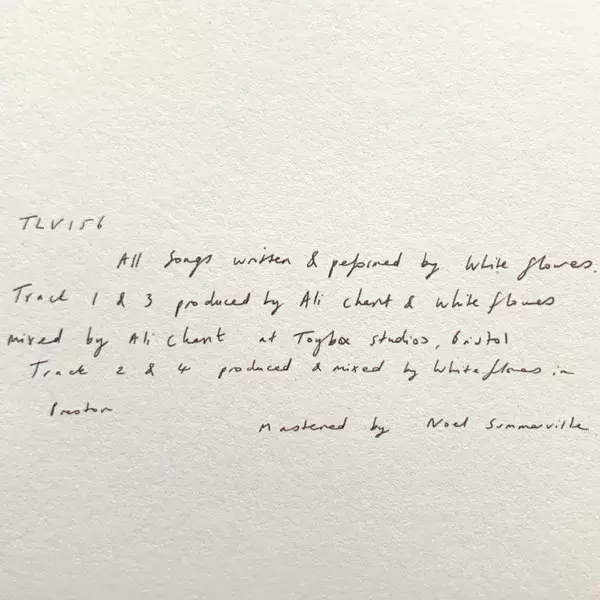 TLV156
All songs written & peformed by White flowers.
Track 1 & 3 produced by Ali Chant & White flowers
mixed by Ali Chant at Toybox studios, Bristol
Track 2 & 4 produced & mixed by White flowers in
Preston
Mastered by Noel Summerville